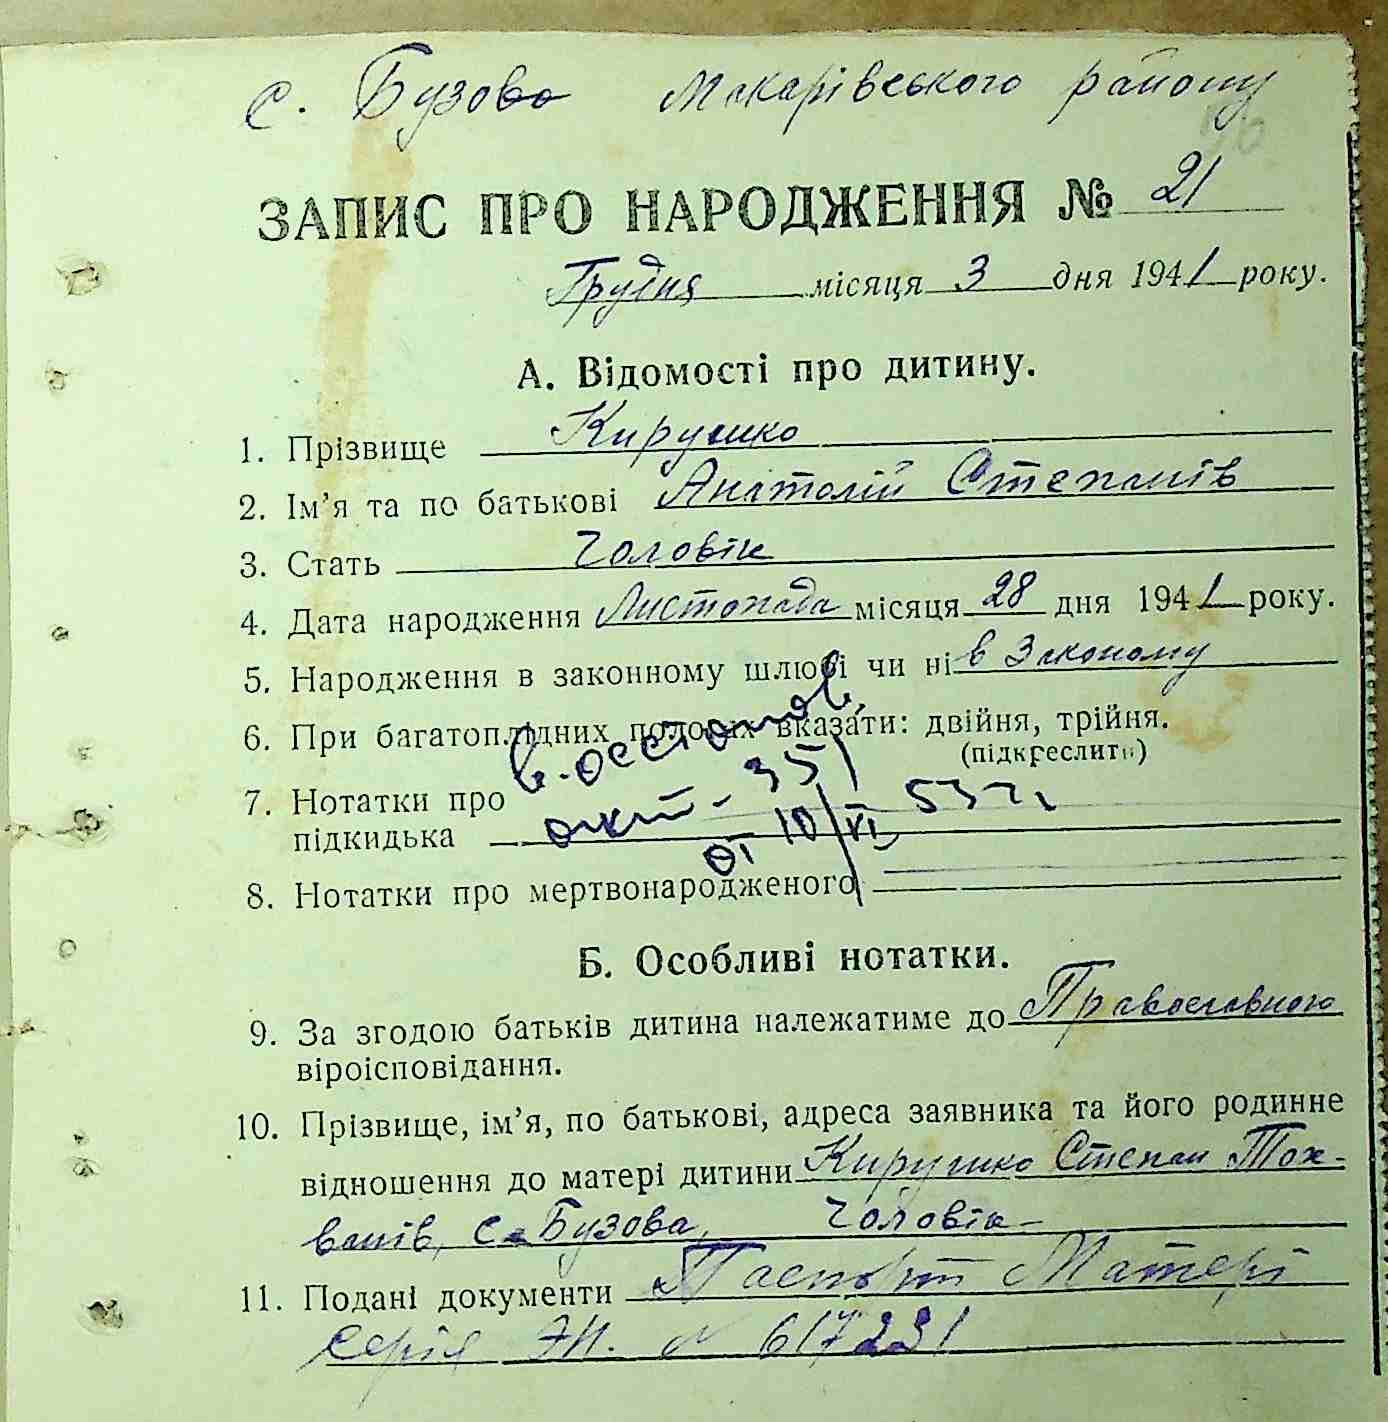 с. Бузова Макарівського району
ЗАПИС ПРО НАРОДЖЕННЯ № 21
Грудня місяця 3 дня 1941 року.
А. Відомості про дитину.
1. Прізвище Кирушко
2. Ім'я та по батькові Анатолій Степанів
3. Стать Чоловік
4. Дата народження Листопада місяця 28 дня 1941 року.
5. Народження в законному шлюбі чи ні в Законому
6. При багатоплідних пологах вказати: двійня, трійня.
(підкреслити)
7. Нотатки про
підкидька
8. Нотатки про мертвонародженого
Б. Особливі нотатки.
9. За згодою батьків дитина належатиме до Православного
віроісповідання.
10. Прізвище, ім'я, по батькові, адреса заявника та його родинне
відношення до матері дитини Кирушко Степан
с. Бузова, Чоловік
11. Подані документи Паспорт Матері
серія N 617231